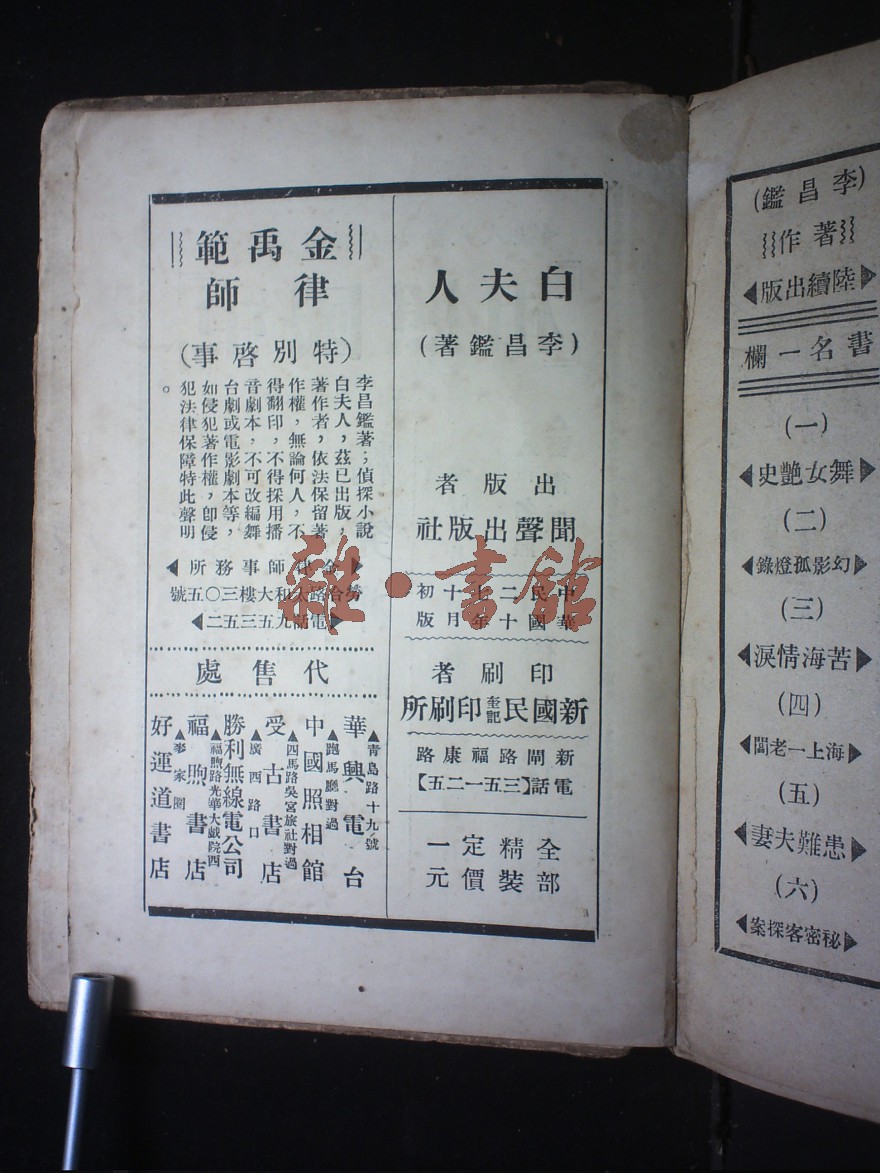 白夫人
(李昌鑑著)
出版者
聞聲出版社
中華民國二十七年十月初版
印刷者
新國民奎記印刷所
新閘路福康路
電話【三五一二五】
全部精裝定價一元
金禹範
律師
(特別啓事)
李昌鑑著；偵探小說
白夫人，茲已出版，
著作者，依法保留著
作權，無論何人，不
得翻印，不得採用播
音劇本，不可改編舞
台劇或電影劇本等，
如侵犯著作權，卽侵
犯法律保障特此聲明
。
金律師事務所
勞合路太和大樓三〇五號
電話九五三五二
代售處
華興電台
▲青島路十九號
中國照相館
▲跑馬廳對過
受古書店
▲四馬路吳宮旅社對過
勝利無線電公司
▲廣西路口
福煦書店
▲福煦路光華大戲院西
好運道書店
▲麥家圈
(李昌鑑)
著作
陸續出版
書名一欄
(一)
舞女艷史
(二)
幻影孤燈錄
(三)
苦海情淚
(四)
海上一老闆
(五)
患難夫妻
(六)
秘密客探案
雜·書館